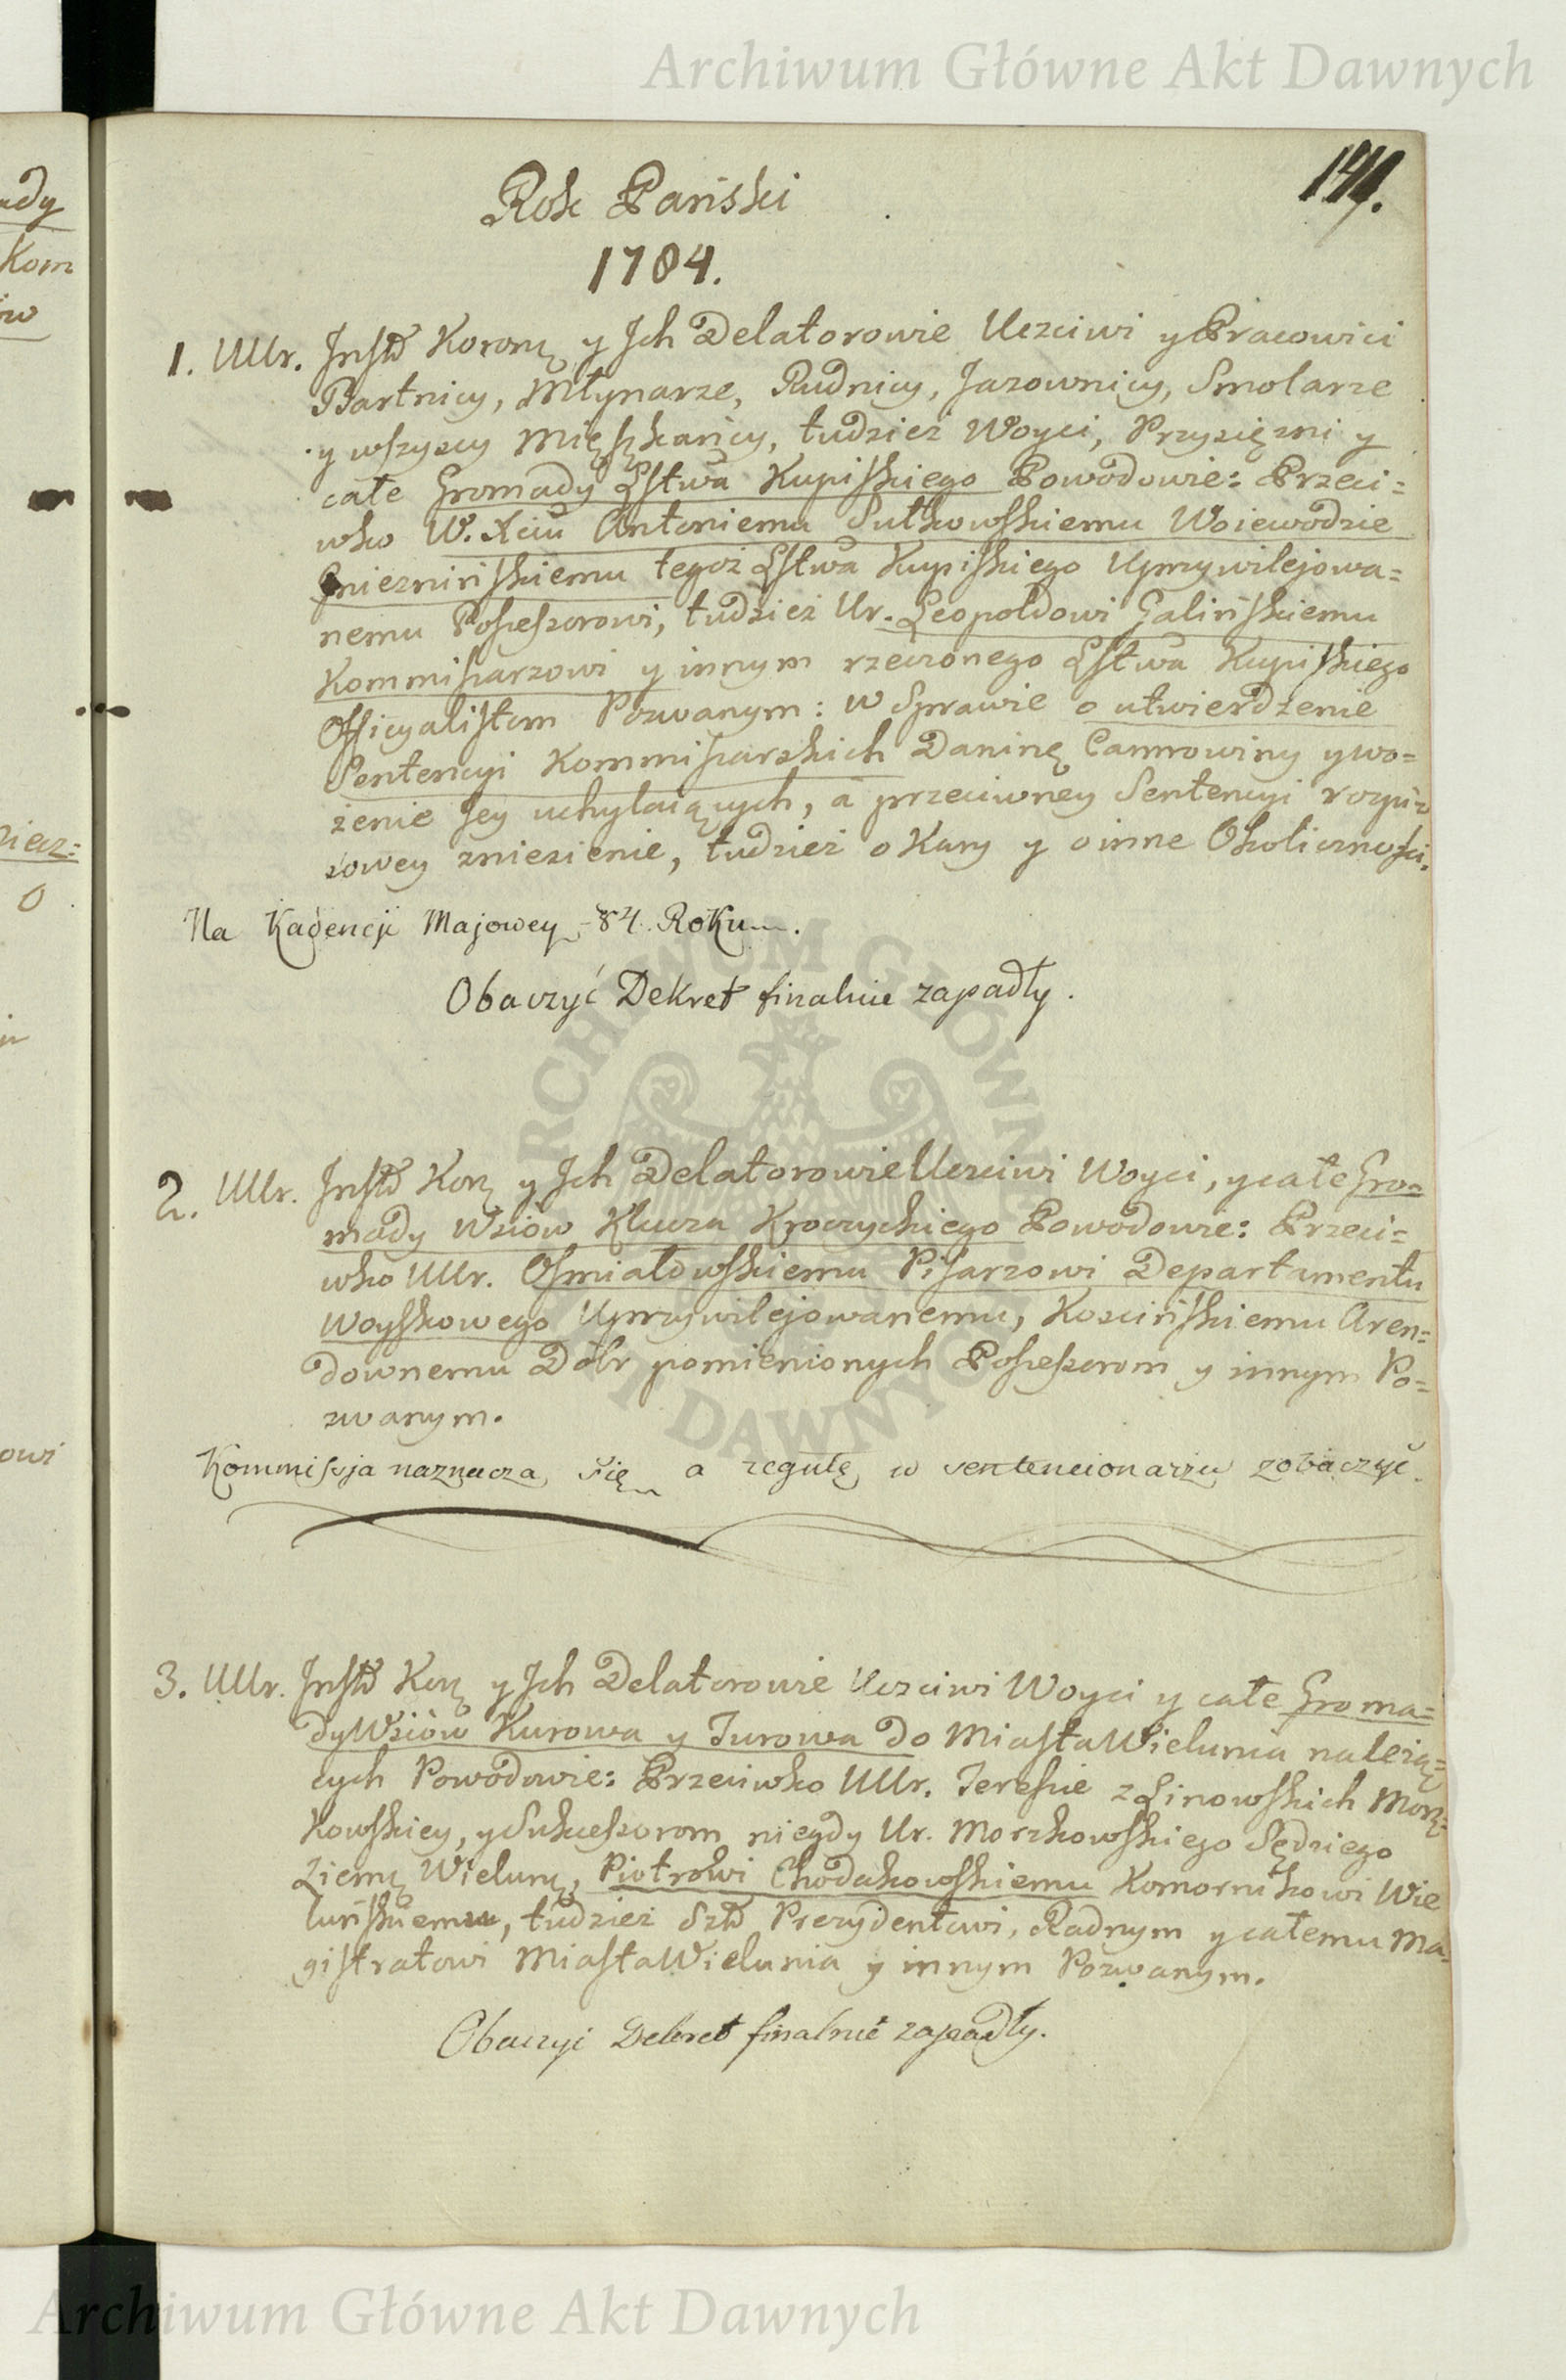 Archiwum Główne Akt Dawnych
Rok Pański
1784.
1. UUr. Instő Koronę y Jch Delatorowie Uczciwi y Pracowici
Bartnicy, Młynarze, Rudnicy, Jazownicy, Smolarze
y wszyscy Mięszkańcy, tudzież Woyci, Przysięzni y
całe Gromady Lstwa Kupiskiego Powodowie: Przeci=
wko W. Xciu Antoniemu Sułkowskiemu Woiewodzie
Gniezninskiemu tegoż Lstwa Kupiskiego Uprzywilejowa=
nemu Possessorowi, tudzież Ur. Leopoldowi Galińskiemu
Kommissarzowi y innym rzeczonego Lstwa Kupiskiego
Officyalistom Pozwanym: w Sprawie o utwierdzenie
Sentencyi Kommissarskich Daninę Cannowiny y wo=
żenie Jey uchylaiących, á przeciwney Sentencyi
zowey zniesienie, tudzież o Kary y o inne Okoliczności.
Na Kadencji Majowey 84. Roku.
Obaczyć Dekret finalnie zapadły.
2. UUr. Instő Korę y Jch Delatorowie Uczciwi Woyci, y całe Gro=
mady Wsiów Klucza Kroczyckiego Powodowie: Przeci=
wko UUr. Osmiałowskiemu Pisarzowi Departamentu
Woyskowego Uprzywilejowanemu, Kościńskiemu Aren=
downemu Dóbr pomienionych Possessorom y innym Po=
zwanym.
Kommissja naznacza się a regułę w sentencionarzu zobaczyć.
3. UUr. Instő Korę y Jch Delatorowie Uczciwi Woyci y całe Groma=
dy Wsiów Kurowa y Turowa do Miasta Wielunia należą=
cych Powodowie: Przeciwko UUr. Teressie z Linowskich Morz=
kowskiey, y Sukcessorom niegdy Ur. Morzkowskiego Sędziego
Ziemę Wielunę, Piotrowi Chodakowskiemu Komornikowi Wie
luńskiemu, tudzież Szł Prezydentowi, Radnym y całemu Ma=
gistratowi Miasta Wielunia y innym Pozwanym.
Obaczyć Dekret finalnie zapadły.
Archiwum Główne Akt Dawnych